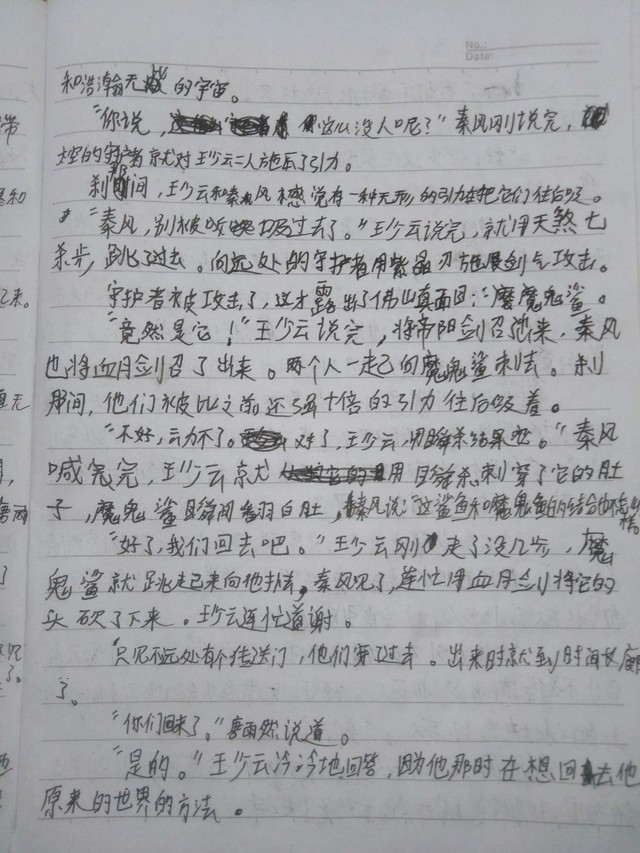 No.:
Date:
和浩瀚无 的宇宙。
“你说, 这么没人呢?”秦风刚说完,
空的守护者就对王少云二人施展了引力。
刹那间,王少云和秦风感觉有一种无形的引力在把它们往后吸。
“秦风,别被吸过去了。”王少云说完,就用天煞七
杀步,跳了过去。向远处的守护者用紫晶刃施展剑气攻击。
守护者被攻击了,这才露出了佛山真面目:“魔魔鬼鲨。
“竟然是它!”王少云说完,将帝阳剑召 来,秦风
也将血月剑召了出来。两个人一起向魔鬼鲨刺去。刹
那间,他们被比之前还强十倍的引力往后吸着。
“不好,动不了。 对了,王少云,用瞬杀结果它。”秦风
喊完,王少云就用瞬杀刺穿了它的肚
子,魔鬼鲨瞬间翻白肚,秦风说:“这鲨鱼和魔鬼鱼的结合也不怎么样
“好了,我们回去吧。”王少云刚走了没几步,魔
鬼鲨就跳起来向他扑去,秦风见了,连忙用血月剑将它的
头砍了下来。王少云连忙道谢。
只见不远处有个传送门,他们穿了过去。出来时就到时间长廊
了。
“你们回来了。”唐雨然说道。
“是的。”王少云冷冷地回答,因为他那时在想回去他
原来的世界的方法。